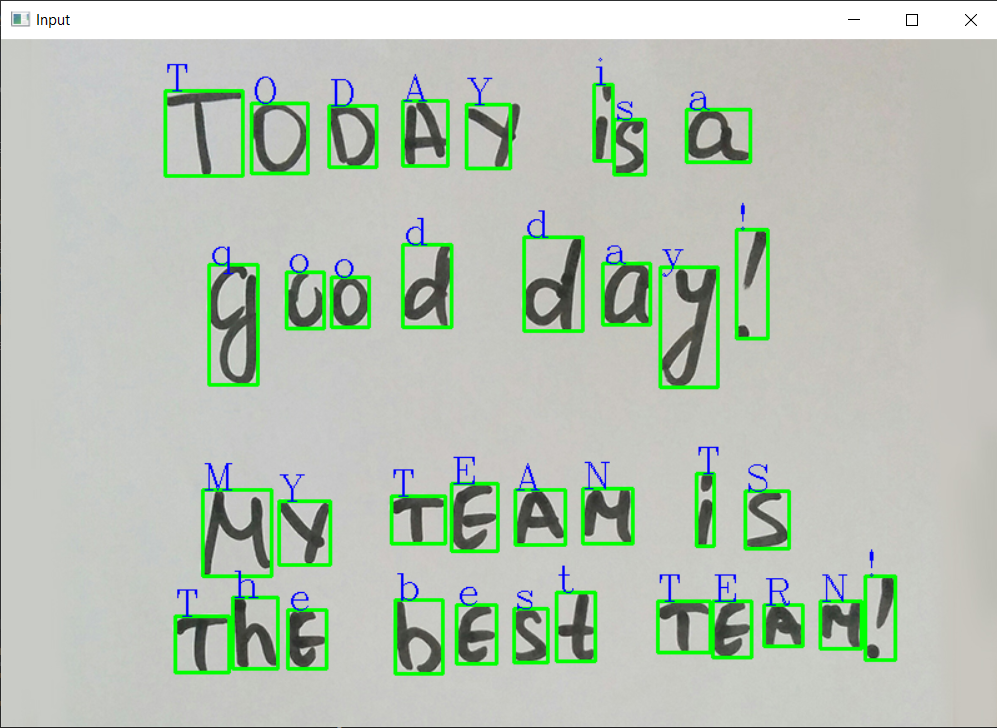 Input
T O D A Y i s a
TODAY is a
q o o d d a y !
good day!
M Y T E A N T S
MY TEAM iS
T h e b e s t T E R N !
ThE bEst TEAM!